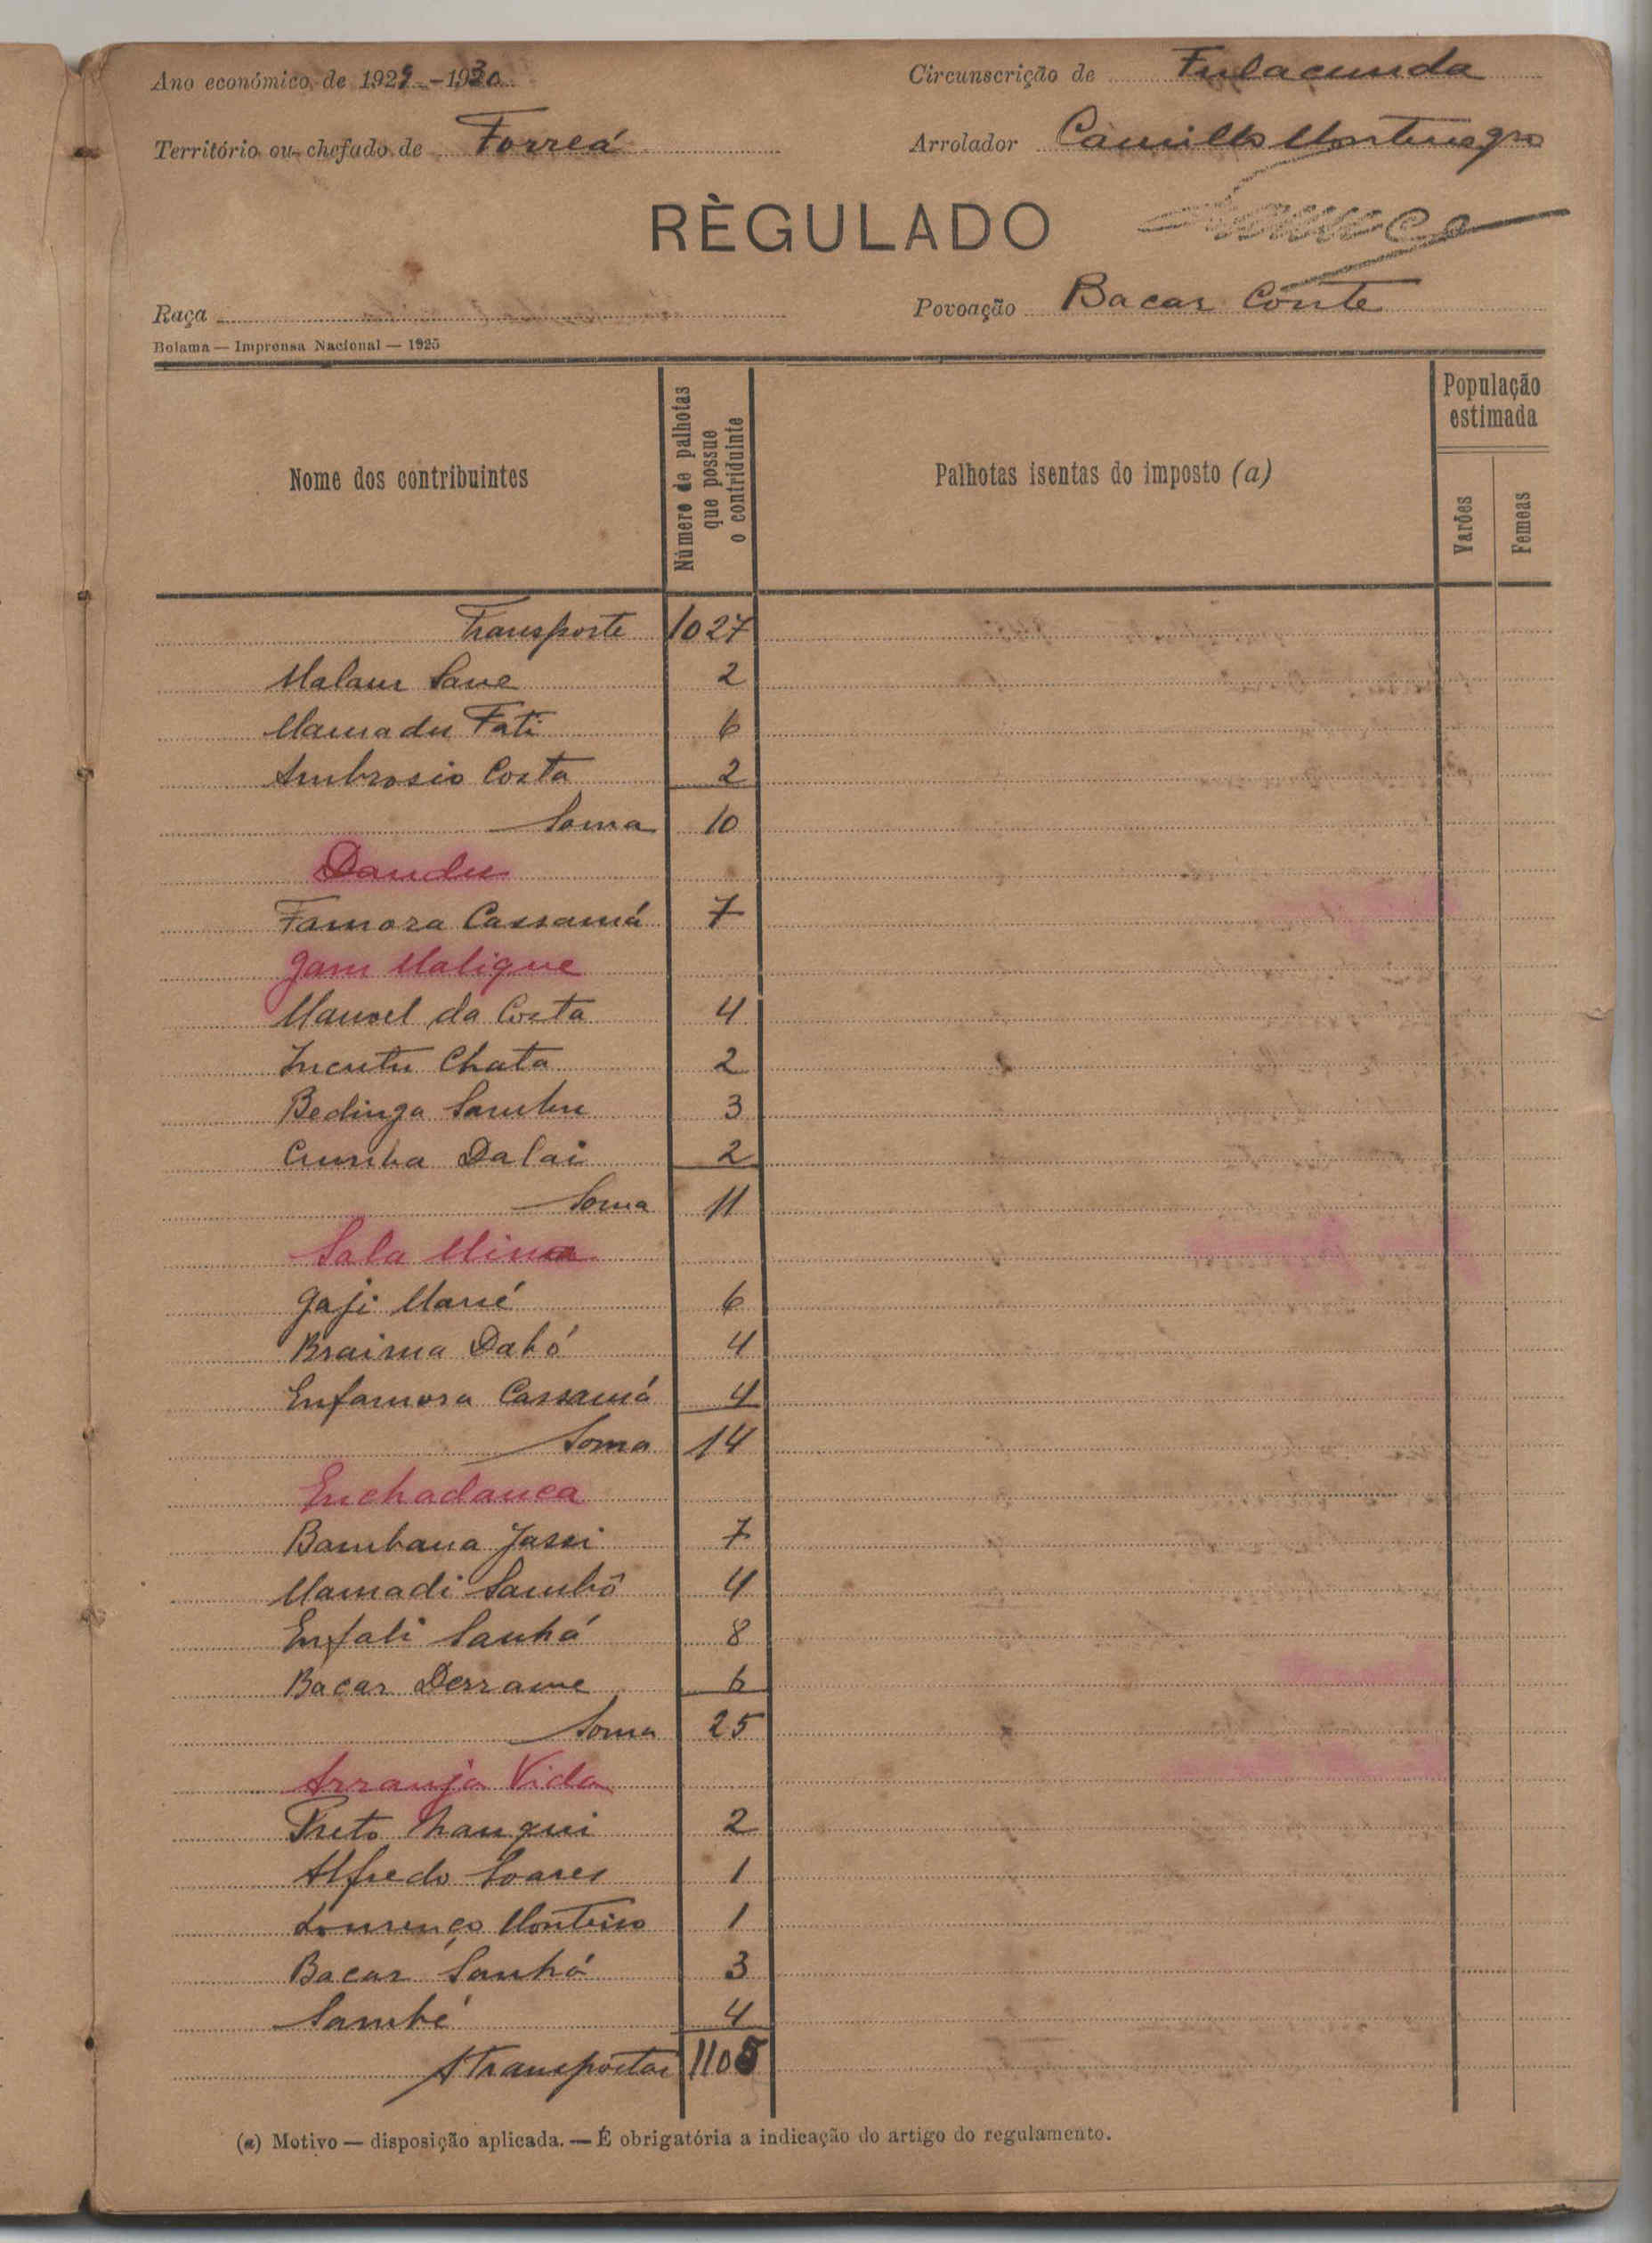 Ano económico de 1929-1930
Circunscrição de Fulacunda
Território ou chefado de Forreá
Arrolador Camillo Montenegro
RÈGULADO
Raça
Povoação Bacar Conte
Bolama — Imprensa Nacional — 1925
Nome dos contribuintes
Número de palhotas que possue o contriduinte
Palhotas isentas do imposto (a)
População estimada
Varões
Femeas
Transporte 1027
Malam Sane 2
Mamadu Fati 6
Ambrosio Costa 2
Soma 10
Dandu
Famora Cassamá 7
Jam Malique
Manoel da Costa 4
Incutu Chata 2
Bedinga Sambu 3
Cumba Dalai 2
Soma 11
Sala Mina
Gaji Mané 6
Braima Dabó 4
Enfamora Cassamá 4
Soma 14
Enchadanca
Bambana Jassi 7
Mamadi Sambô 4
Enfali Sanhá 8
Bacar Derrame 6
Soma 25
Arranja Vida
Preto Nanqui 2
Alfredo Soares 1
Lourenço Monteiro 1
Bacar Sanhá 3
Sambé 4
A transportar 1105
(a) Motivo — disposição aplicada. — É obrigatória a indicação do artigo do regulamento.